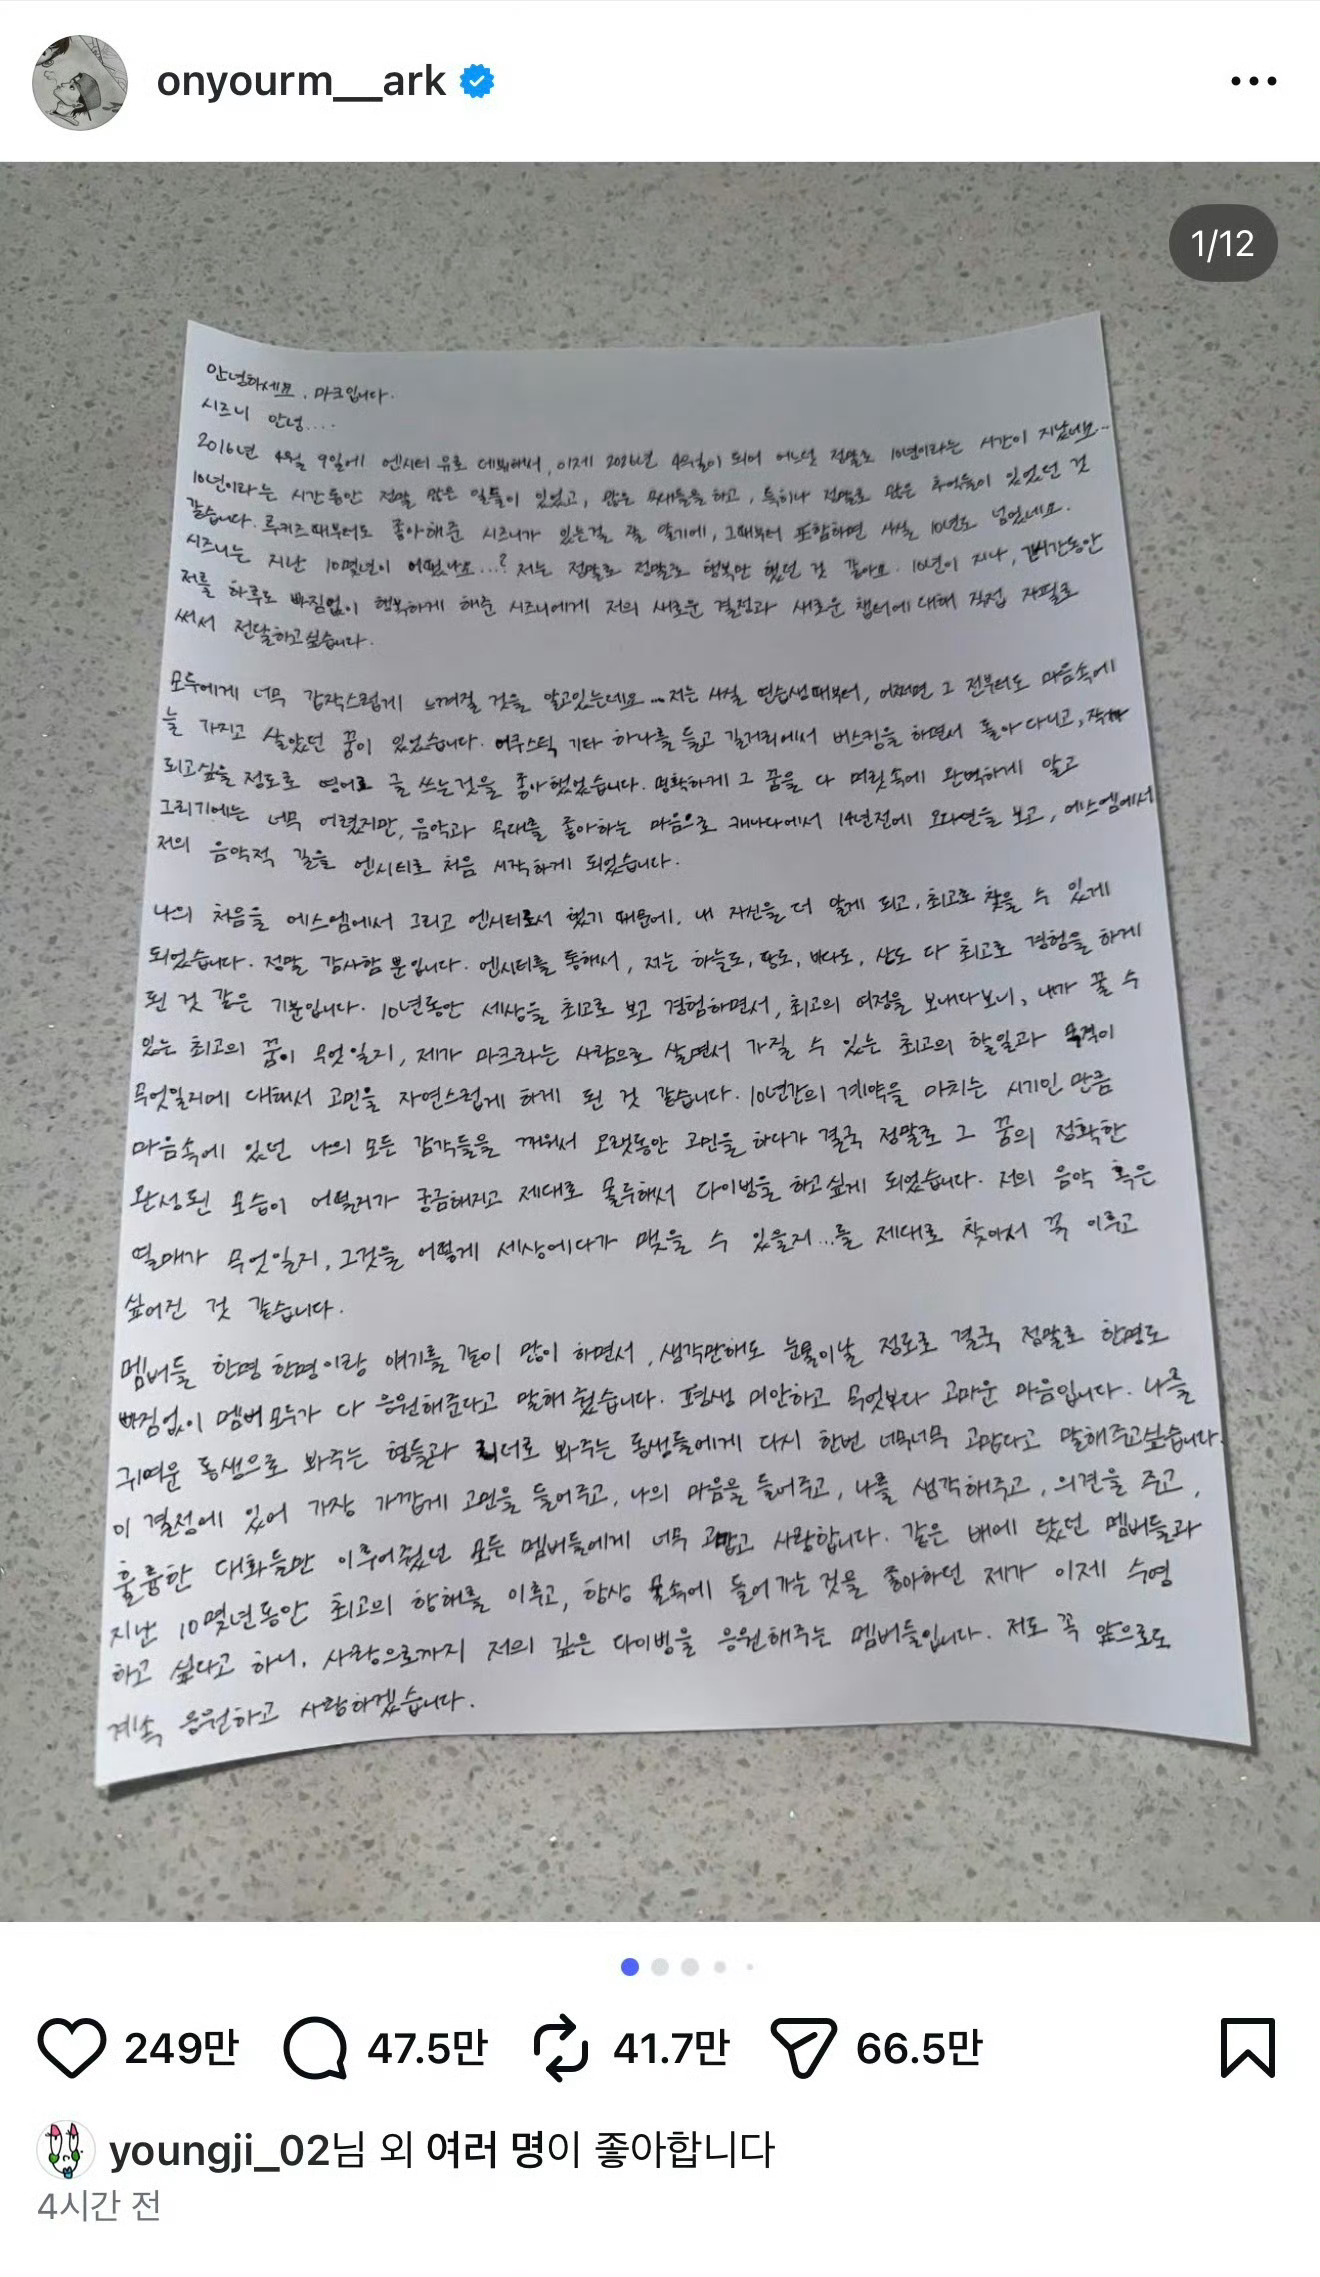 onyourm__ark
1/12
안녕하세요. 마크입니다.
시즈니 안녕....
2016년 4월 9일에 엔시티 유로 데뷔해서, 이제 2026년 4월이 되어 어느날 정말로 10년이라는 시간이 지났네요...
10년이라는 시간동안 정말 많은 일들이 있었고, 많은 무대들을 하고, 특히나 정말로 많은 추억들이 있었던 것
같습니다. 루키즈때부터도 좋아해준 시즈니가 있는걸 잘 알기에, 그때부터 포함하면 사실 10년도 넘었네요.
시즈니는 지난 10몇년이 어땠나요...? 저는 정말로 정말로 행복만 했던 것 같아요. 10년이 지나, 긴시간동안
저를 하루도 빠짐없이 행복하게 해준 시즈니에게 저의 새로운 결정과 새로운 챕터에 대해 직접 자필로
써서 전달하고싶습니다.
모두에게 너무 갑작스럽게 느껴질 것을 알고있는데요...저는 사실 연습생때부터, 어쩌면 그 전부터도 마음속에
늘 가지고 살았던 꿈이 있었습니다. 어쿠스틱 기타 하나를 들고 길거리에서 버스킹을 하면서 돌아다니고, 작가
되고싶을 정도로 영어로 글 쓰는것을 좋아했었습니다. 명확하게 그 꿈을 다 머릿속에 완벽하게 알고
그리기에는 너무 어렸지만, 음악과 무대를 좋아하는 마음으로 캐나다에서 14년전에 오디션을 보고, 에스엠에서
저의 음악적 길을 엔시티로 처음 시작하게 되었습니다.
나의 처음을 에스엠에서 그리고 엔시티로서 했기 때문에, 내 자신을 더 알게 되고, 최고로 찾을 수 있게
되었습니다. 정말 감사함 뿐입니다. 엔시티를 통해서, 저는 하늘도, 땅도, 바다도, 산도 다 최고로 경험을 하게
된 것 같은 기분입니다. 10년동안 세상을 최고로 보고 경험하면서, 최고의 여정을 보내다보니, 내가 꿀 수
있는 최고의 꿈이 무엇일지, 제가 마크라는 사람으로 살면서 가질 수 있는 최고의 할일과 목적이
무엇일지에 대해서 고민을 자연스럽게 하게 된 것 같습니다. 10년간의 계약을 마치는 시기인 만큼
마음속에 있던 나의 모든 감각들을 깨워서 오랫동안 고민을 하다가 결국 정말로 그 꿈의 정확한
완성된 모습이 어떨지가 궁금해지고 제대로 몰두해서 다이빙을 하고싶게 되었습니다. 저의 음악 혹은
열매가 무엇일지, 그것을 어떻게 세상에다가 맺을 수 있을지...를 제대로 찾아서 꼭 이루고
싶어진 것 같습니다.
멤버들 한명 한명이랑 얘기를 같이 많이 하면서, 생각만해도 눈물이날 정도로 결국 정말로 한명도
빠짐없이 멤버 모두가 다 응원해준다고 말해 줬습니다. 평생 미안하고 무엇보다 고마운 마음입니다. 나를
귀여운 동생으로 봐주는 형들과 리더로 봐주는 동생들에게 다시 한번 너무너무 고맙다고 말해주고싶습니다.
이 결정에 있어 가장 가깝게 고민을 들어주고, 나의 마음을 들어주고, 나를 생각해주고, 의견을 주고,
훌륭한 대화들만 이루어줬던 모든 멤버들에게 너무 고맙고 사랑합니다. 같은 배에 탔던 멤버들과
지난 10몇년동안 최고의 항해를 이루고, 항상 물속에 들어가는 것을 좋아하던 제가 이제 수영
하고 싶다고 하니, 사랑으로까지 저의 깊은 다이빙을 응원해주는 멤버들입니다. 저도 꼭 앞으로도
계속 응원하고 사랑하겠습니다.
249만 47.5만 41.7만 66.5만
youngji_02님 외 여러 명이 좋아합니다
4시간 전